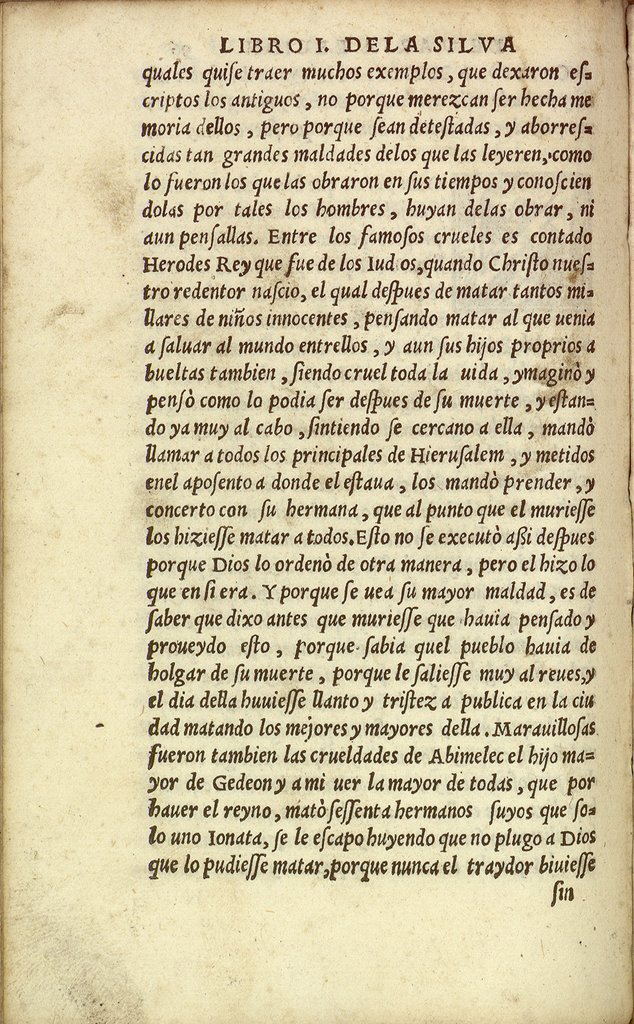 LIBRO I. DELA SILVA
quales quiſe traer muchos exemplos, que dexaron eſ-
criptos los antiguos, no porque merezcan ſer hecha me
moria dellos, pero porque ſean deteſtadas, y aborreſ-
cidas tan grandes maldades delos que las leyeren, como
lo fueron los que las obraron en ſus tiempos y conoſcien
dolas por tales los hombres, huyan delas obrar, ni
aun penſallas. Entre los famoſos crueles es contado
Herodes Rey que fue de los Iud os, quando Chriſto nueſ-
tro redentor naſcio, el qual deſpues de matar tantos mi-
llares de niños innocentes, penſando matar al que uenia
a ſaluar al mundo entrellos, y aun ſus hijos proprios a
bueltas tambien, ſiendo cruel toda la uida, ymaginò y
penſò como lo podia ſer deſpues de ſu muerte, y eſtan-
do ya muy al cabo, ſintiendo ſe cercano a ella, mandò
llamar a todos los principales de Hieruſalem, y metidos
enel apoſento a donde el eſtaua, los mandò prender, y
concerto con ſu hermana, que al punto que el murieſſe
los hizieſſe matar a todos. Eſto no ſe executò aßi deſpues
porque Dios lo ordenò de otra manera, pero el hizo lo
que en ſi era. Y porque ſe uea ſu mayor maldad, es de
ſaber que dixo antes que murieſſe que hauia penſado y
proueydo eſto, porque ſabia quel pueblo hauia de
holgar de ſu muerte, porque le ſalieſſe muy al reues, y
el dia della huuieſſe llanto y triſtez a publica en la ciu
dad matando los mejores y mayores della. Marauilloſas
fueron tambien las crueldades de Abimelec el hijo ma-
yor de Gedeon y a mi uer la mayor de todas, que por
hauer el reyno, matò ſeſſenta hermanos ſuyos que ſo-
lo uno Ionata, ſe le eſcapo huyendo que no plugo a Dios
que lo pudieſſe matar, porque nunca el traydor biuieſſe
ſin